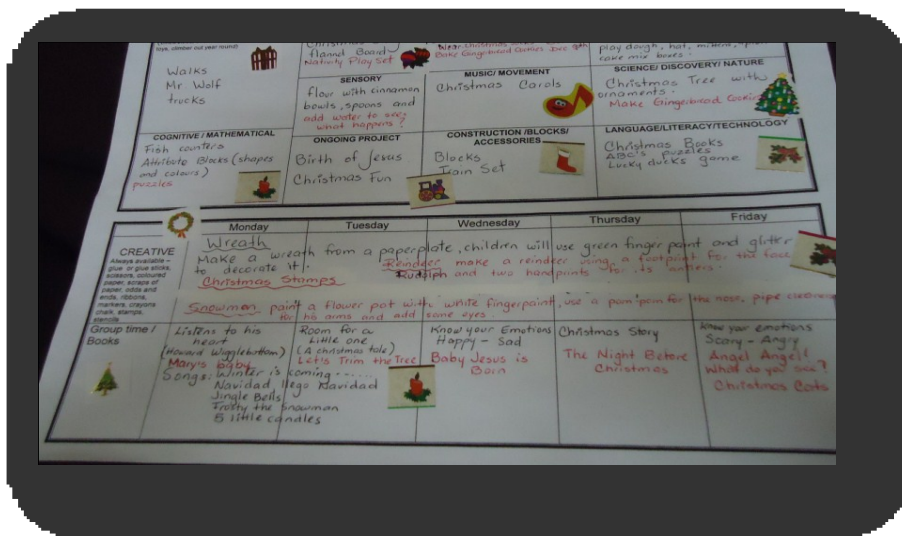 toys, climber out year round)
Walks
Mr Wolf
trucks
Christmas
flannel Board
Nativity Play Set
Bake Gingerbread Cookies Dec 9th
play dough, hat, mittens,
cake mix boxes.
SENSORY
flour with cinnamon
bowls, spoons and
add water to see;
what happens?
MUSIC/ MOVEMENT
Christmas Carols
SCIENCE/ DISCOVERY/ NATURE
Christmas Tree with
ornaments.
Make Gingerbread Cookies
COGNITIVE / MATHEMATICAL
Fish counters
Attribute Blocks (shapes
and colours)
puzzles
ONGOING PROJECT
Birth of Jesus
Christmas Fun
CONSTRUCTION /BLOCKS/
ACCESSORIES
Blocks
Train Set
LANGUAGE/LITERACY/TECHNOLOGY
Christmas Books
ABC's puzzles
Lucky ducks game
Monday Tuesday Wednesday Thursday Friday
CREATIVE
Always available –
glue or glue sticks,
scissors, coloured
paper, scraps of
paper, odds and
ends, ribbons,
markers, crayons
chalk, stamps,
stencils
Wreath
Make a wreath from a paperplate, children will use green finger paint and glitter
to decorate it. Reindeer make a reindeer using a footprint for the face
Rudolph and two handprints for its antlers.
Christmas Stamps
Snowmen paint a flower pot with white fingerpaint, use a pom pom for the nose, pipe cleaners
for his arms and add some eyes.
Group time /
Books
Listens to his
heart
(Howard Wigglebottom)
Mary's baby
Songs: Winter is coming
Navidad llego Navidad
Jingle Bells
Frosty the Snowman
5 little candles
Room for a
Little one
(A christmas tale)
Let's Trim the Tree
Know your Emotions
Happy - Sad
Baby Jesus is
Born
Christmas Story
The Night Before
Christmas
Know your emotions
Scary - Angry
Angel Angel!
What do you see?
Christmas Cats